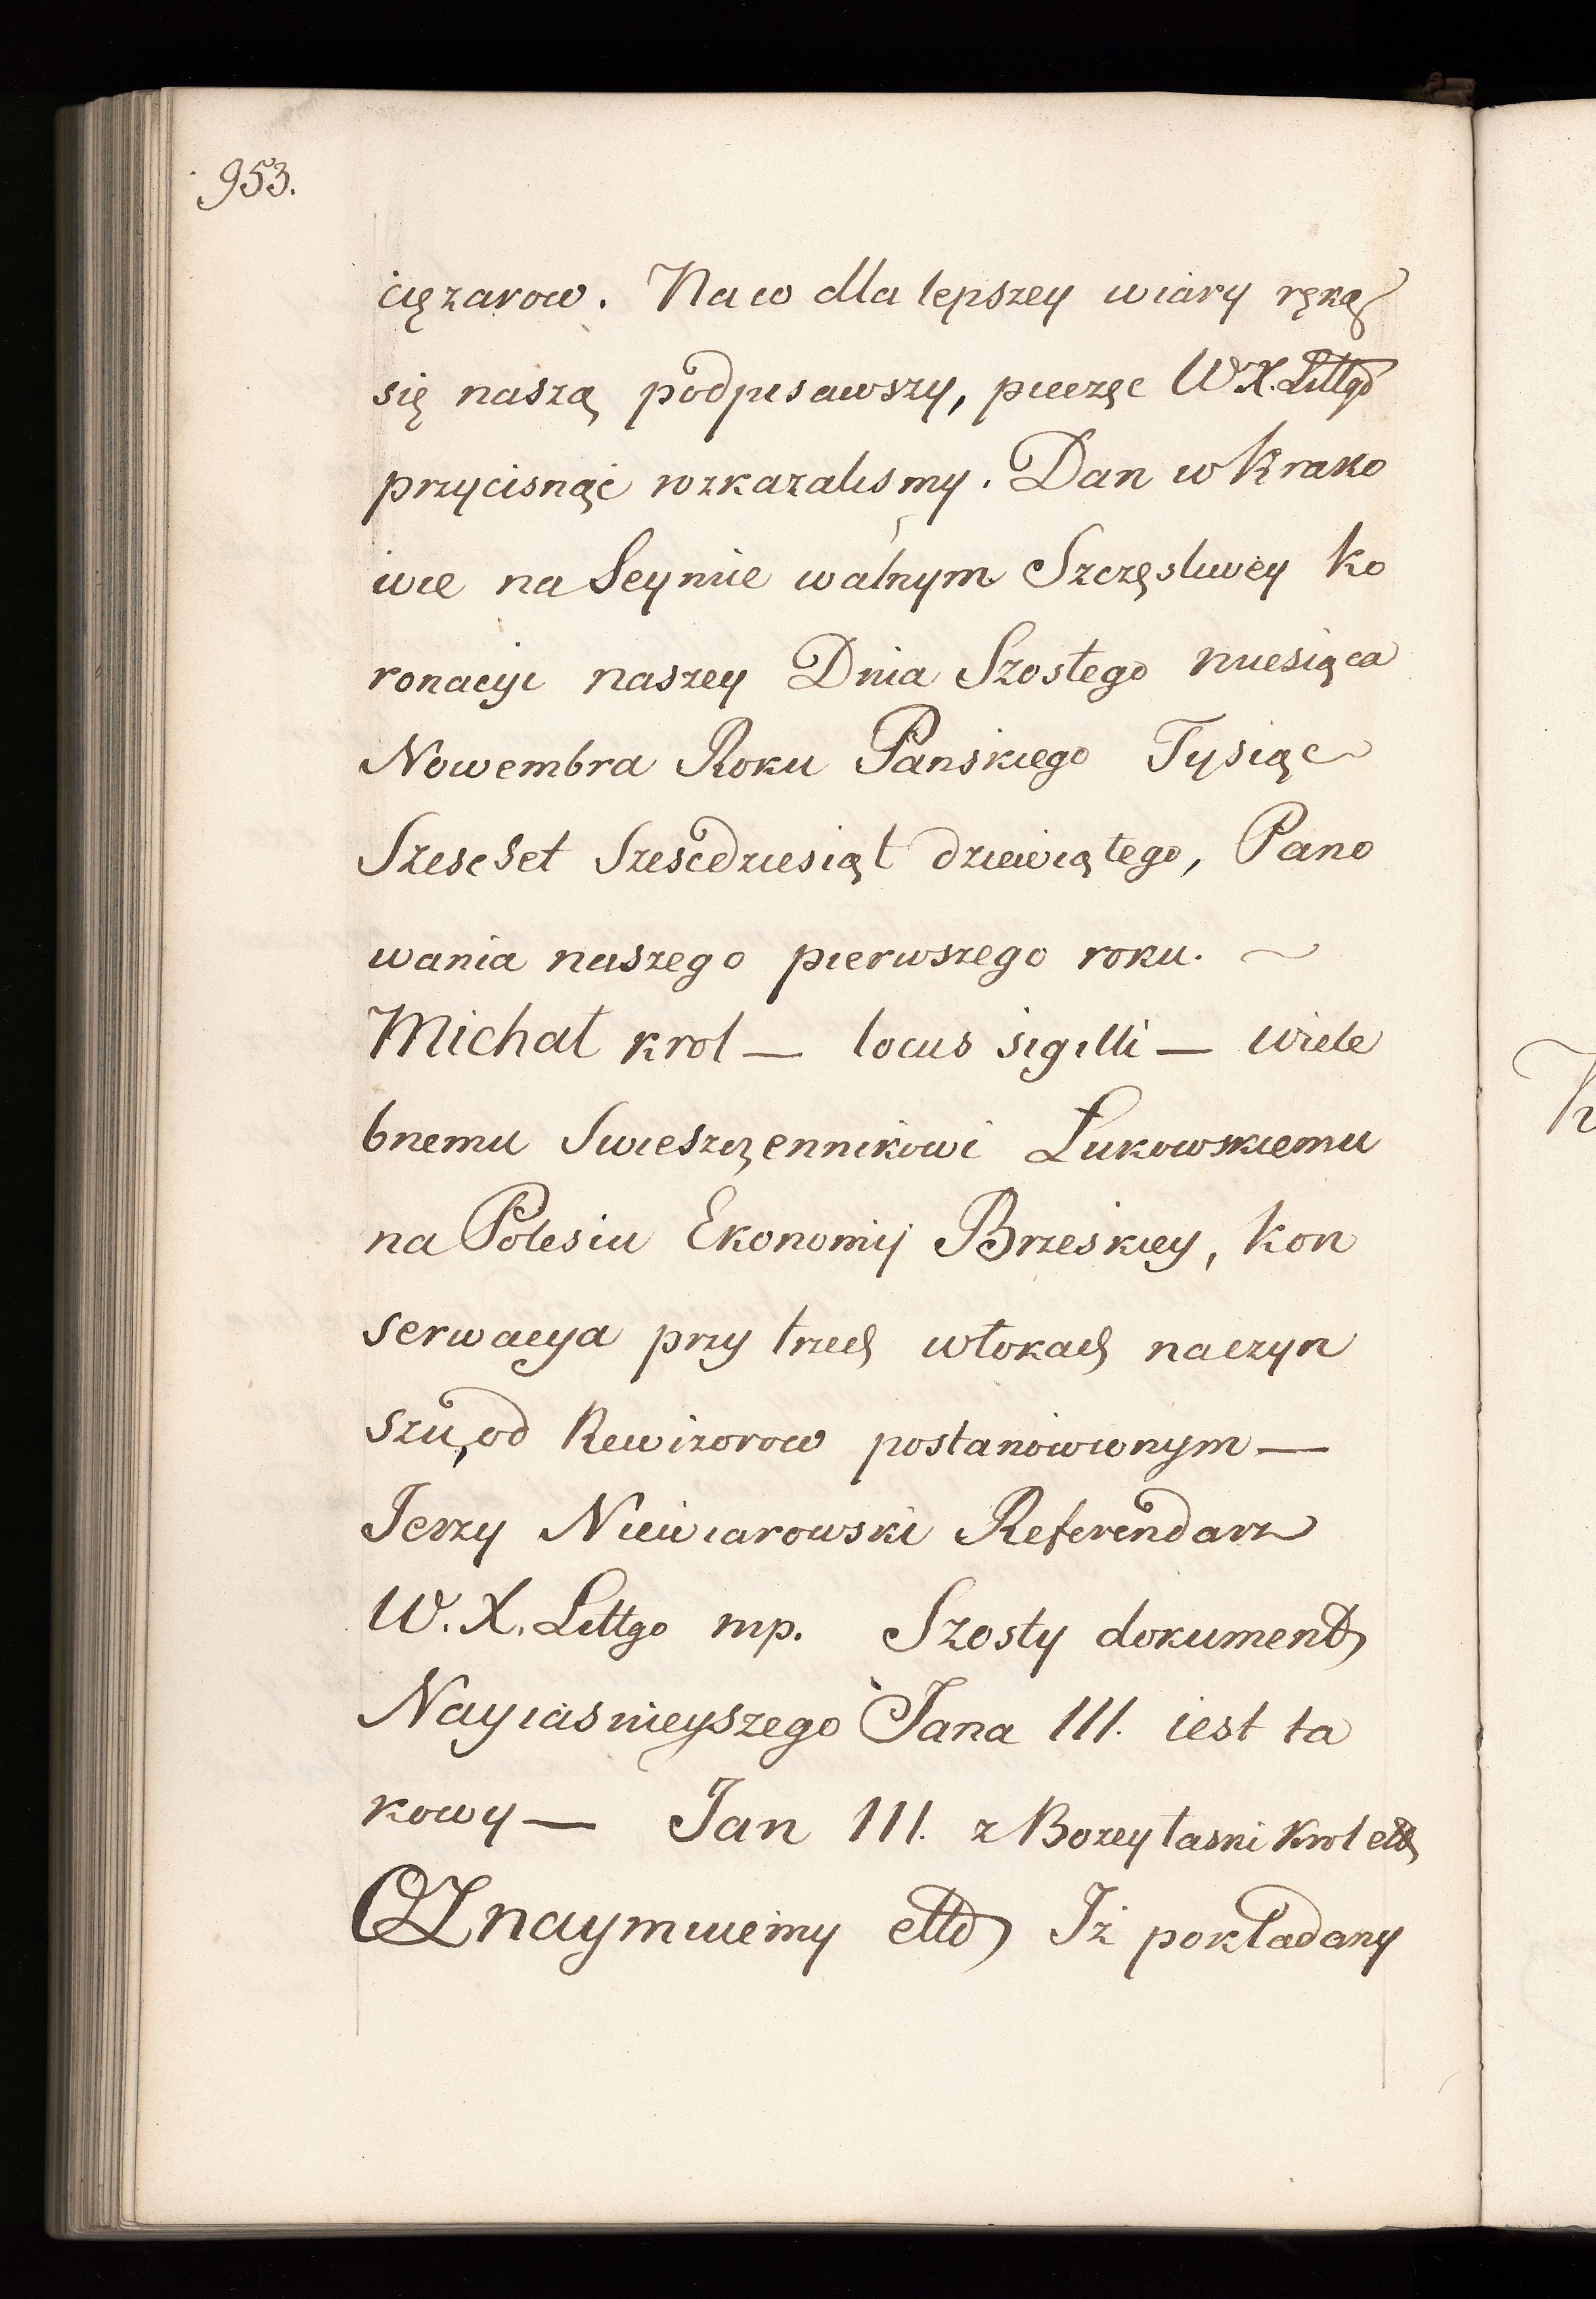 953.
ciężarow. Na co dla lepszey wiary ręką
się naszą podpisawszy, pieczęc W X. Littgo
przycisnąć rozkazalismy. Dan w Krako
wie na Seymie walnym Szczęsliwey ko
ronacyi naszey Dnia Szostego miesiąca
Nowembra Roku Panskiego Tysiąc
Szescset Szescdziesiąt dziewiątego, Pano
wania naszego pierwszego roku. ~
Michał krol — locus sigilli — wiele
bnemu Swieszczennikowi Łukowskiemu
na Polesiu Ekonomij Brzeskiey, kon
serwacya przy trzech włokach na czyn
szu, od Rewizorow postanowionym —
Jerzy Niewiarowski Referendarz
W. X. Littgo mp. Szosty dokument
Nayiasnieyszego Jana III. iest ta
kowy — Jan III. z Bozey łaski Krol ettd
OZnaymuiemy ettd Iż pokładany